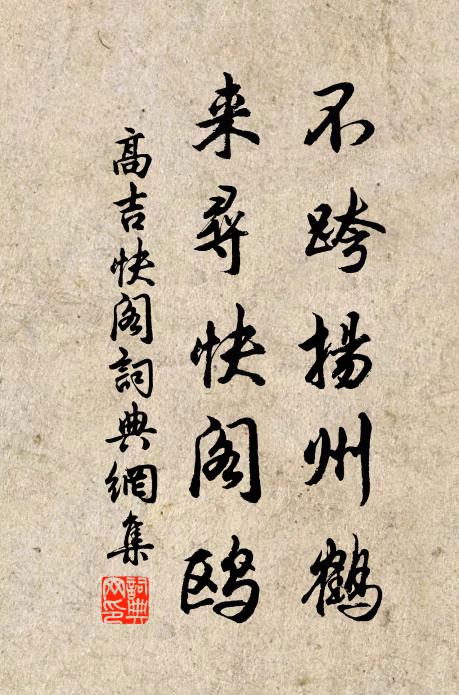 不跨揚州鶴
来尋快阁鸥
高吉快阁詞典網集
詞典网印